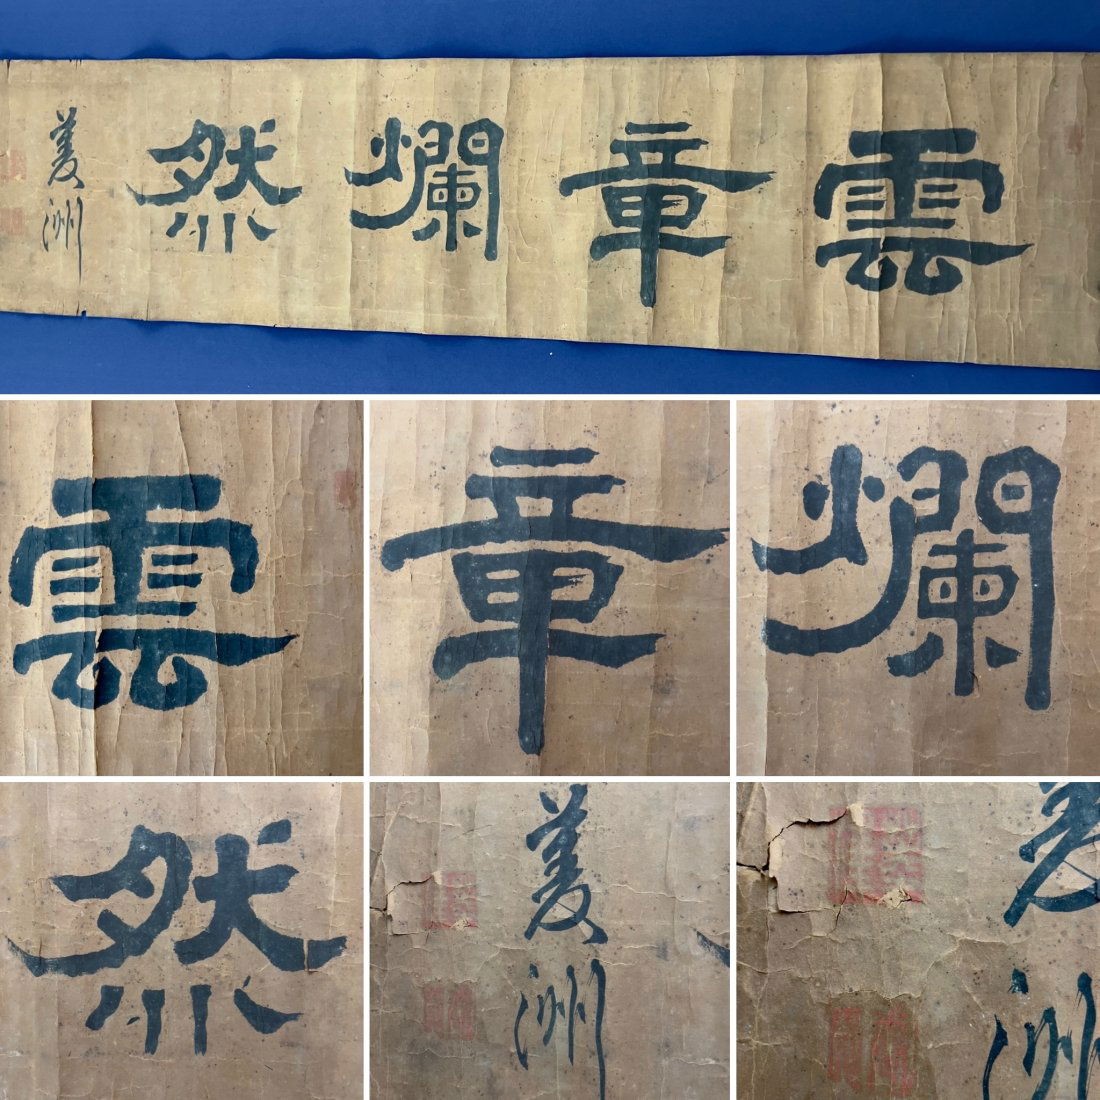 雲章爛然
菱洲
雲
章
爛
然
菱洲
洲